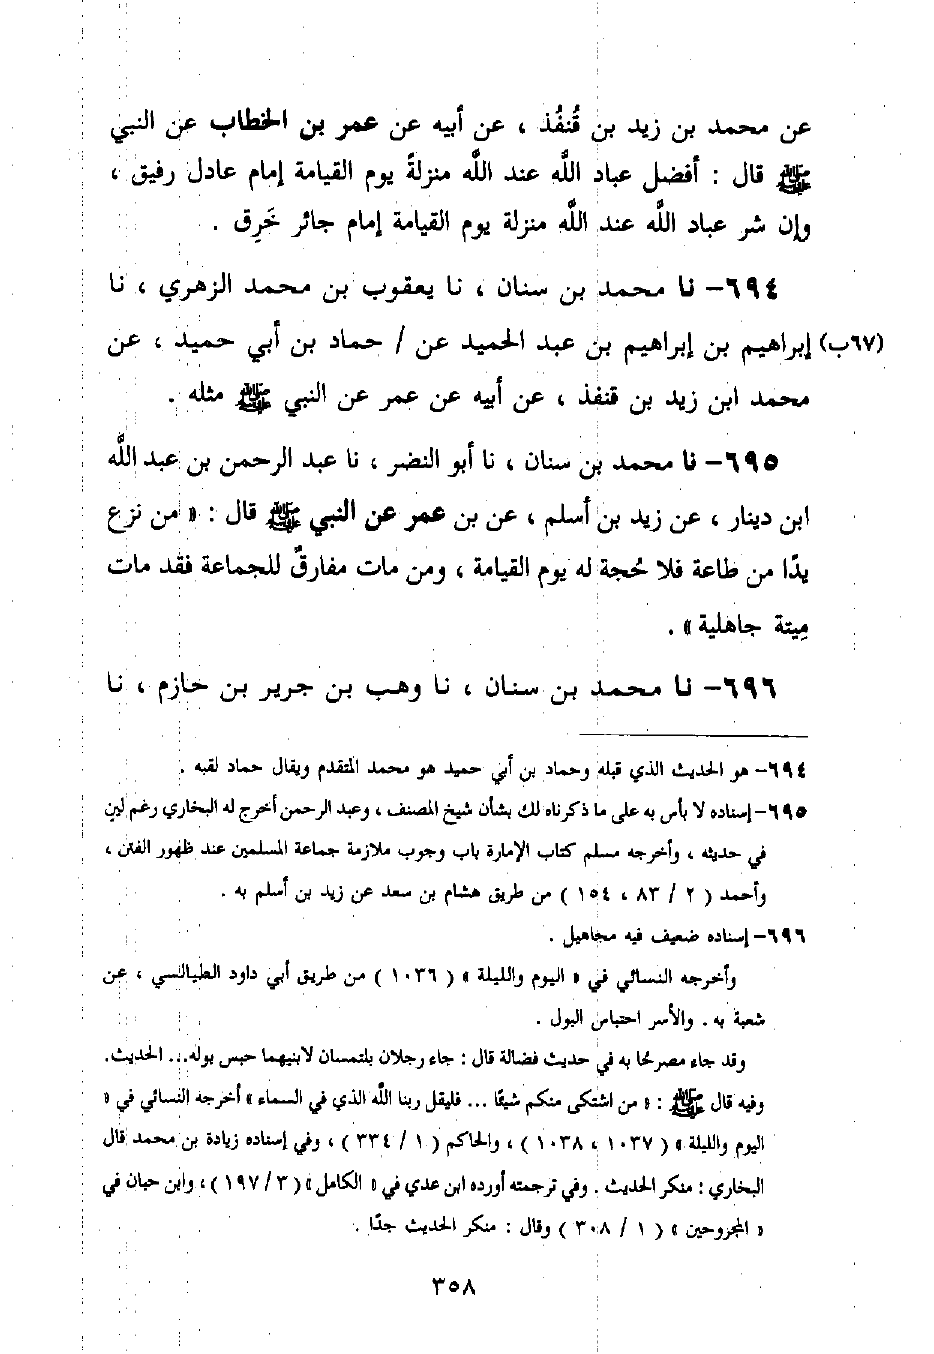 عن محمد بن زيد بن قُنفُذ ، عن أبيه عن عمر بن الخطاب عن النبي
ﷺ قال : أفضل عباد اللَّه عند اللَّه منزلةً يوم القيامة إمام عادل رفيق ،
وإن شر عباد اللَّه عند اللَّه منزلة يوم القيامة إمام جائر خَرِق .
٦٩٤- نا محمد بن سنان ، نا يعقوب بن محمد الزهري ، نا
(٦٧ب) إبراهيم بن إبراهيم بن عبد الحميد عن / حماد بن أبي حميد ، عن
محمد ابن زيد بن قنفذ ، عن أبيه عن عمر عن النبي ﷺ مثله .
٦٩٥- نا محمد بن سنان ، نا أبو النضر ، نا عبد الرحمن بن عبد اللَّه
ابن دينار ، عن زيد بن أسلم ، عن بن عمر عن النبي ﷺ قال : « من نزع
يدًا من طاعة فلا حُجة له يوم القيامة ، ومن مات مفارقٌ للجماعة فقد مات
مِيتة جاهلية » .
٦٩٦- نا محمد بن سنان ، نا وهب بن جرير بن حازم ، نا
٦٩٤- هو الحديث الذي قبله وحماد بن أبي حميد هو محمد المتقدم ويقال حماد لقبه .
٦٩٥- إسناده لا بأس به على ما ذكرناه لك بشأن شيخ المصنف ، وعبد الرحمن أخرج له البخاري رغم لينٍ
في حديثه ، وأخرجه مسلم كتاب الإمارة باب وجوب ملازمة جماعة المسلمين عند ظهور الفتن ،
وأحمد ( ٢ / ٨٣ ، ١٥٤ ) من طريق هشام بن سعد عن زيد بن أسلم به .
٦٩٦- إسناده ضعيف فيه مجاهيل .
وأخرجه النسائي في « اليوم والليلة » ( ١٠٣٦ ) من طريق أبي داود الطيالسي ، عن
شعبة به . والأسر احتباس البول .
وقد جاء مصرحًا به في حديث فضالة قال : جاء رجلان يلتمسان لابنيهما حبس بوله... الحديث.
وفيه قال ﷺ : « من اشتكى منكم شيئًا ... فليقل ربنا اللَّه الذي في السماء » أخرجه النسائي في «
اليوم والليلة » ( ١٠٣٧ ، ١٠٣٨ ) ، والحاكم ( ١ / ٣٣٤ ) ، وفي إسناده زيادة بن محمد قال
البخاري : منكر الحديث . وفي ترجمته أورده ابن عدي في « الكامل » (٣ / ١٩٧) ، وابن حبان في
« المجروحين » ( ١ / ٣٠٨ ) وقال : منكر الحديث جدًا .
٣٥٨